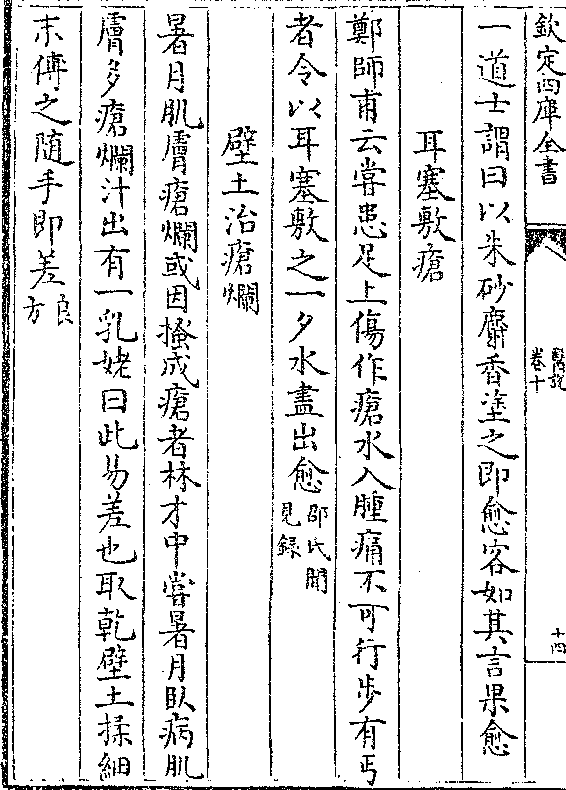 欽定四庫全書
醫說
卷十
十四
一道士謂曰以朱砂麝香塗之即愈客如其言果愈
耳塞敷瘡
鄭師甫云嘗患足上傷作瘡水入腫痛不可行步有丐
者令以耳塞敷之一夕水盡出愈邵氏聞見錄
壁土治瘡爛
暑月肌膚瘡爛或因搔成瘡者林才中嘗暑月臥病肌
膚多瘡爛汁出有一乳姥曰此易差也取乾壁土揉細
末傅之隨手即差良方